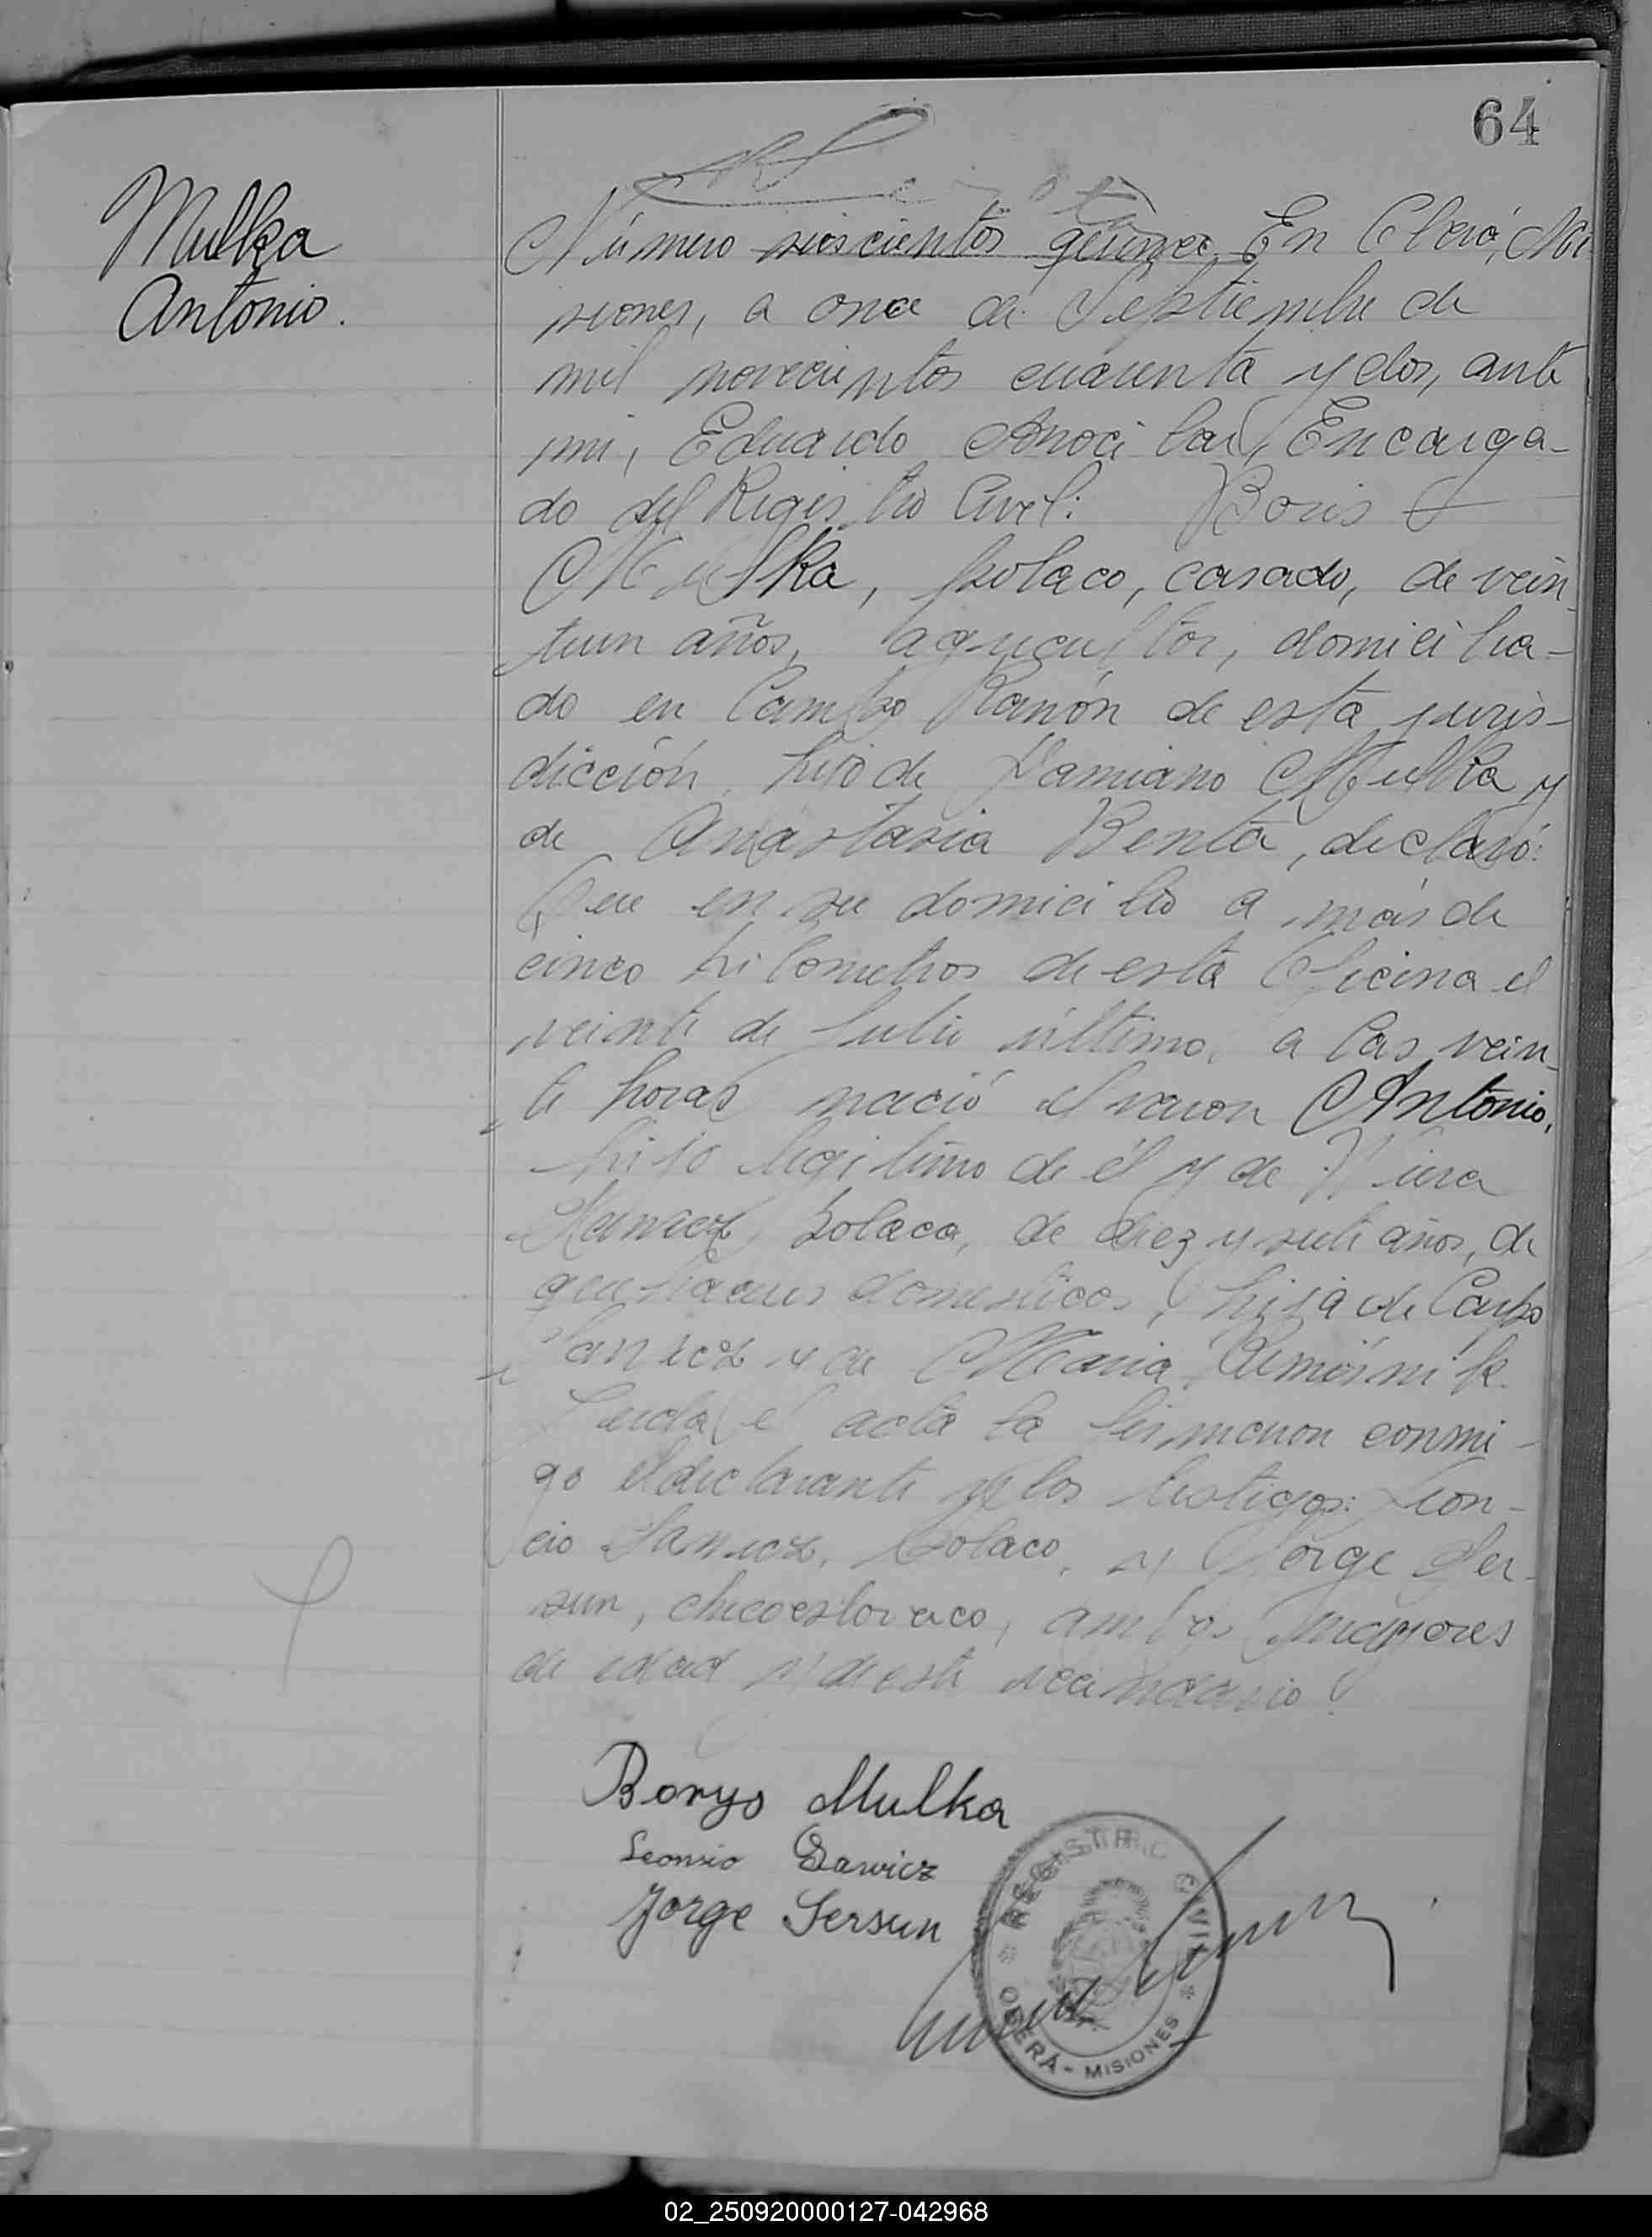 64
Mulka
Antonio.
Número seiscientos quince. En Oberá, Mi
siones, a once de Septiembre de
mil novecientos cuarenta y dos, ante
mi, Eduardo Encarga-
do del Registro Civil: Boris
Mulka, polaco, casado, de vein
tiun años, agricultor, domicilia-
do en Campo Ramón de esta juris-
dicción, hijo de Damiano Mulka y
de Anastasia Benta, declaró:
Que en su domicilio a más de
cinco kilometros de esta Oficina el
veinte de Julio último, a las vein
te horas nació el varon Antonio,
hijo legitimo de él y de
polaca, de diez y siete años, de
quehaceres domesticos, hija de Carpo
y de Maria
Leida el acta la firmaron conmi-
go el declarante y los testigos: Leon-
cio polaco, y Jorge Ser-
sun, checoeslovaco, ambos mayores
de edad y de este vecindario.
Borys Mulka
Leonsio Sawicz
Jorge Sersun
REGISTRO CIVIL
OBERÁ - MISIONES
02_250920000127-042968